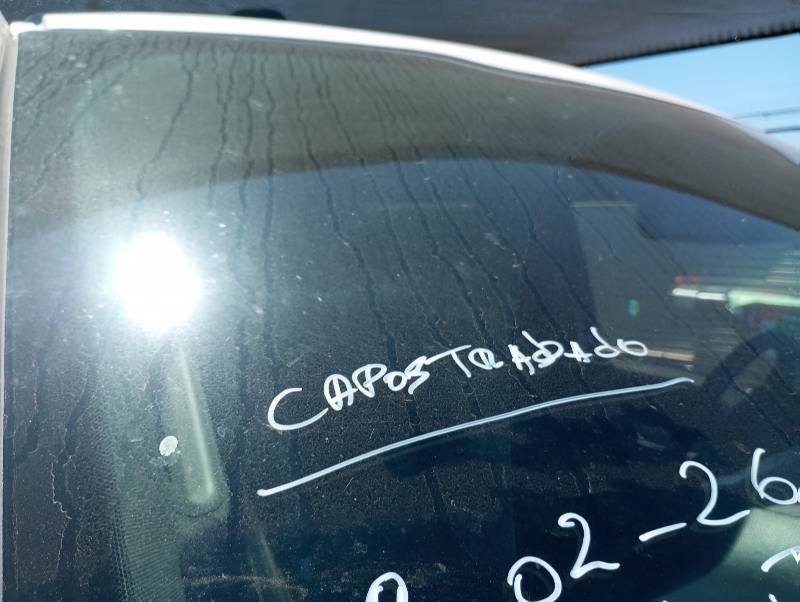 CAPOSTRADADO
02-26